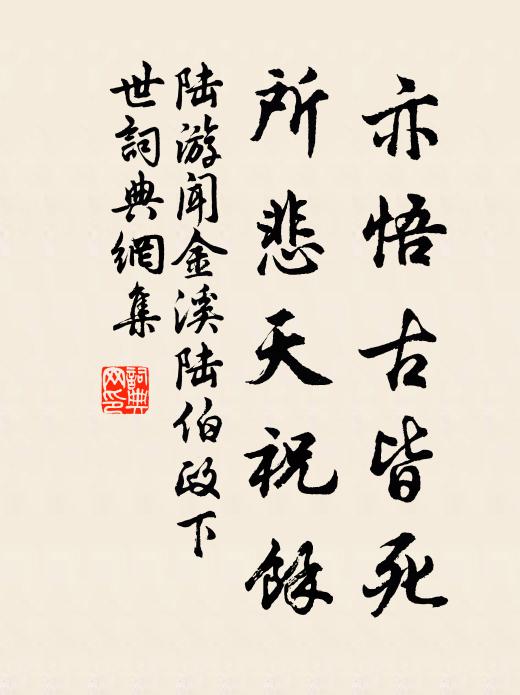 亦悟古皆死
所悲天祝餘
陆游闻金溪陆伯政下
世詞典網集
詞典
网印